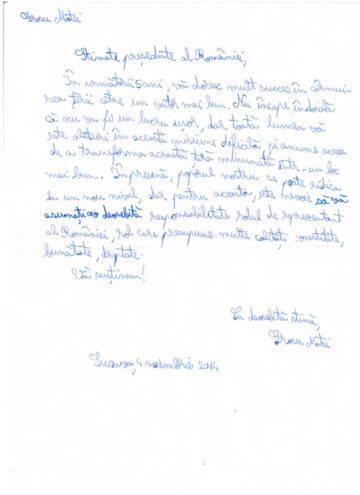 Grosu Matei
Stimate președinte al României,
În următorii 5 ani, vă doresc mult succes în cîrmui-
rea țării către un viitor mai bun. Nu încape îndoială
că nu va fi un lucru ușor, dar toată lumea vă
este alături în această misiune dificilă și anume aceea
de a transforma această țară minunată într-un loc
mai bun. Împreună, poporul nostru se poate ridica
la un nou nivel, dar pentru aceasta, este nevoie să vă
asumați cu deosebită responsabilitate rolul de reprezentant
al României, rol care presupune multe calități: onestitate,
bunătate, dreptate.
Vă susținem!
Cu deosebită stimă,
Grosu Matei
Suceava, 4 noiembrie 2014